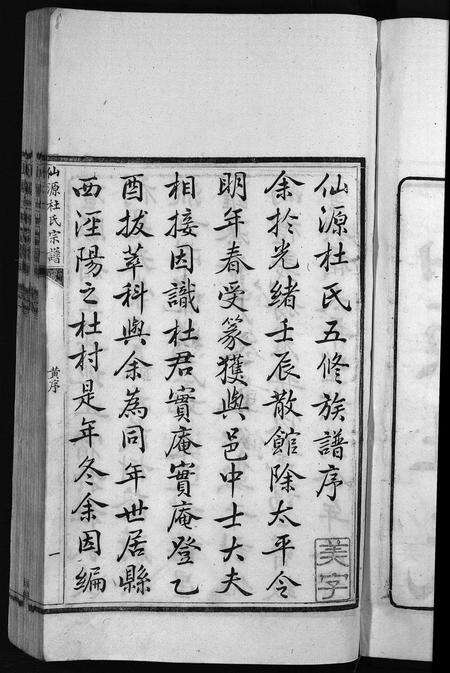 仙源杜氏五修族譜序
余於光緒壬辰散館除太平令
明年春受篆獲與邑中士大夫
相接因識杜君實庵實庵登乙
酉拔萃科與余為同年世居縣
西涇陽之杜村是年冬余因編
美字
仙源杜氏宗譜
黃序
一